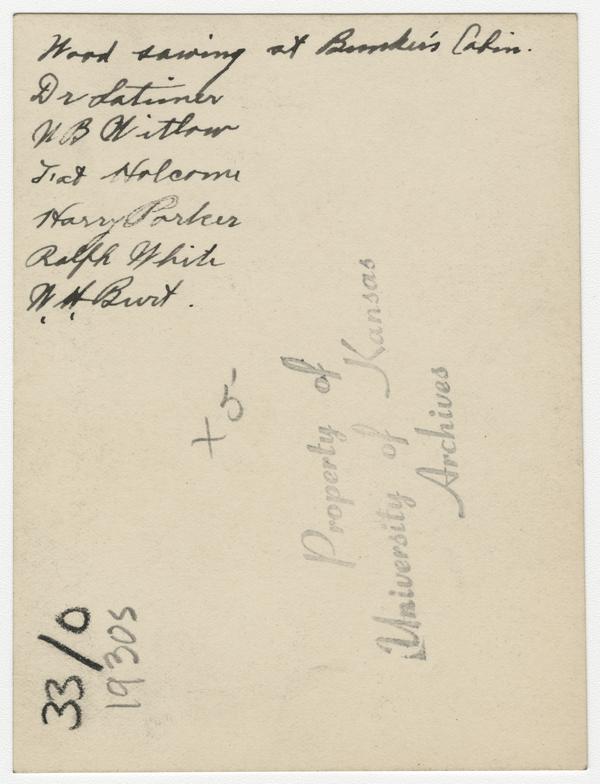 Wood sawing at Bunker's Cabin.
Dr Latimer
W B Witlow
Tat Holcome
Harry Parker
Ralph White
W H Burt.
+5-
Property of
University of Kansas
Archives
33/0
1930s